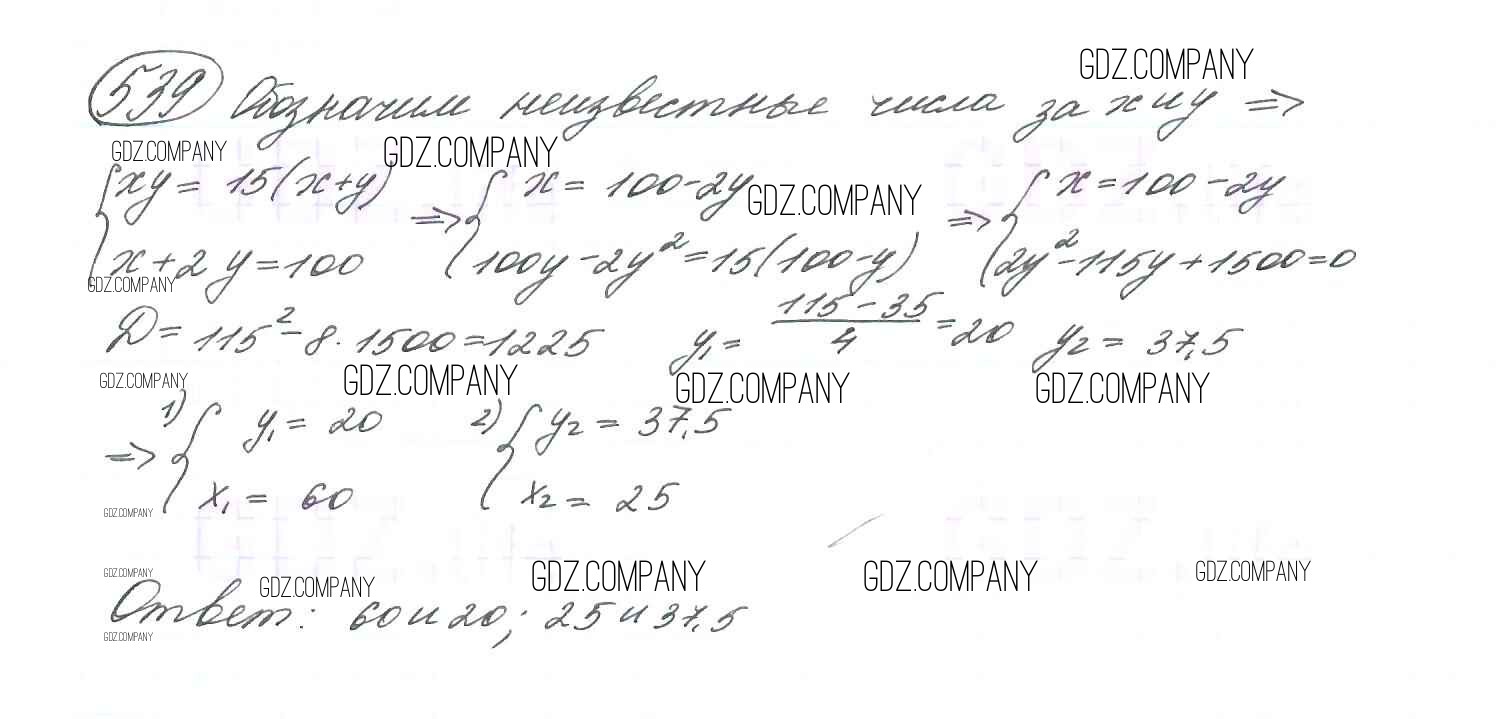 GDZ.COMPANY
539 Обозначим неизвестные числа за x и y =>
GDZ.COMPANY GDZ.COMPANY
{xy = 15(x+y) => {x = 100-2y GDZ.COMPANY => {x = 100-2y
{x+2y=100 {100y-2y²=15(100-y) {2y²-115y+1500=0
GDZ.COMPANY
Д = 115²-8·1500=1225 y₁ = (115-35)/4 = 20 y₂ = 37,5
GDZ.COMPANY GDZ.COMPANY GDZ.COMPANY GDZ.COMPANY
=> 1) {y₁ = 20 2) {y₂ = 37,5
{x₁ = 60 {x₂ = 25
GDZ.COMPANY
GDZ.COMPANY GDZ.COMPANY GDZ.COMPANY GDZ.COMPANY GDZ.COMPANY
Ответ: 60 и 20; 25 и 37,5
GDZ.COMPANY